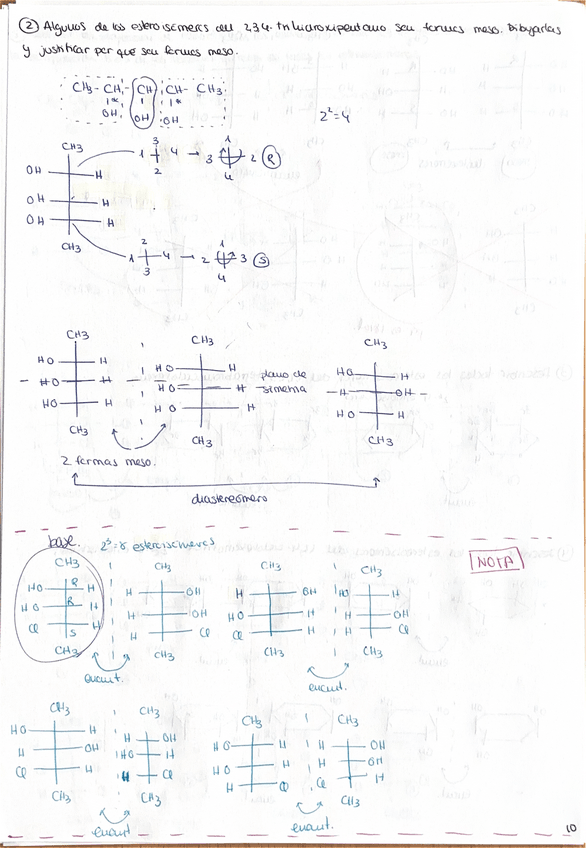 ② Algunos de los estereoisómeros del 2,3,4-trihidroxipentano son formas meso. Dibujarlas
y justificar por qué son formas meso.
CH3-CH-CH-CH-CH3
1* 1*
OH OH OH
2²=4
CH3
3 1
1 4 → 3 2 R
2 4
OH H
OH H
OH H
CH3
2 1
1 4 → 2 3 S
3 4
CH3 CH3 CH3
HO H HO H HO H
HO H HO H plano de simetria H OH
HO H HO H HO H
CH3 CH3 CH3
2 formas meso.
diastereómero
base. 2³=8 estereoisómeros
NOTA
CH3 CH3 CH3 CH3
HO R H H OH H OH HO H
HO R H H OH HO H H OH
Cl S H H Cl H Cl H Cl
CH3 CH3 CH3 CH3
enant. enant.
CH3 CH3 CH3 CH3
HO H H OH HO H H OH
H OH HO H HO H H OH
Cl H H Cl H Cl Cl H
CH3 CH3 CH3 CH3
enant enant.
10